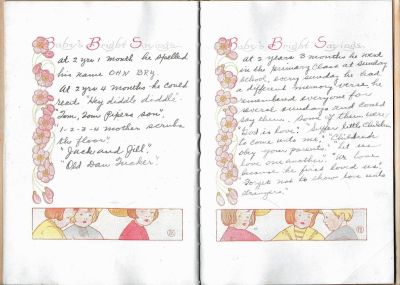 Baby's Bright Sayings
at 2 yrs 1 month he spelled
his name OHN BRY
At 2 yrs 4 months he could
read "Hey diddle diddle"
"Tom, Tom Pipers son",
1-2-3-4 mother scrubs
the floor"
"Jack and Jill"
"Old Dan Tucker".
Baby's Bright Sayings.
at 2 years 3 months he went
in the primary class at Sunday
school, every sunday he had
a different memory verse he
remembered everyone for
several sundays and could
say them. Some of them were
"God is love." "Suffer little children
to come unto me." "Children
obey your parents." "Let us
love one another." "We love
because he first loved us."
"Forget not to show love unto
strangers."